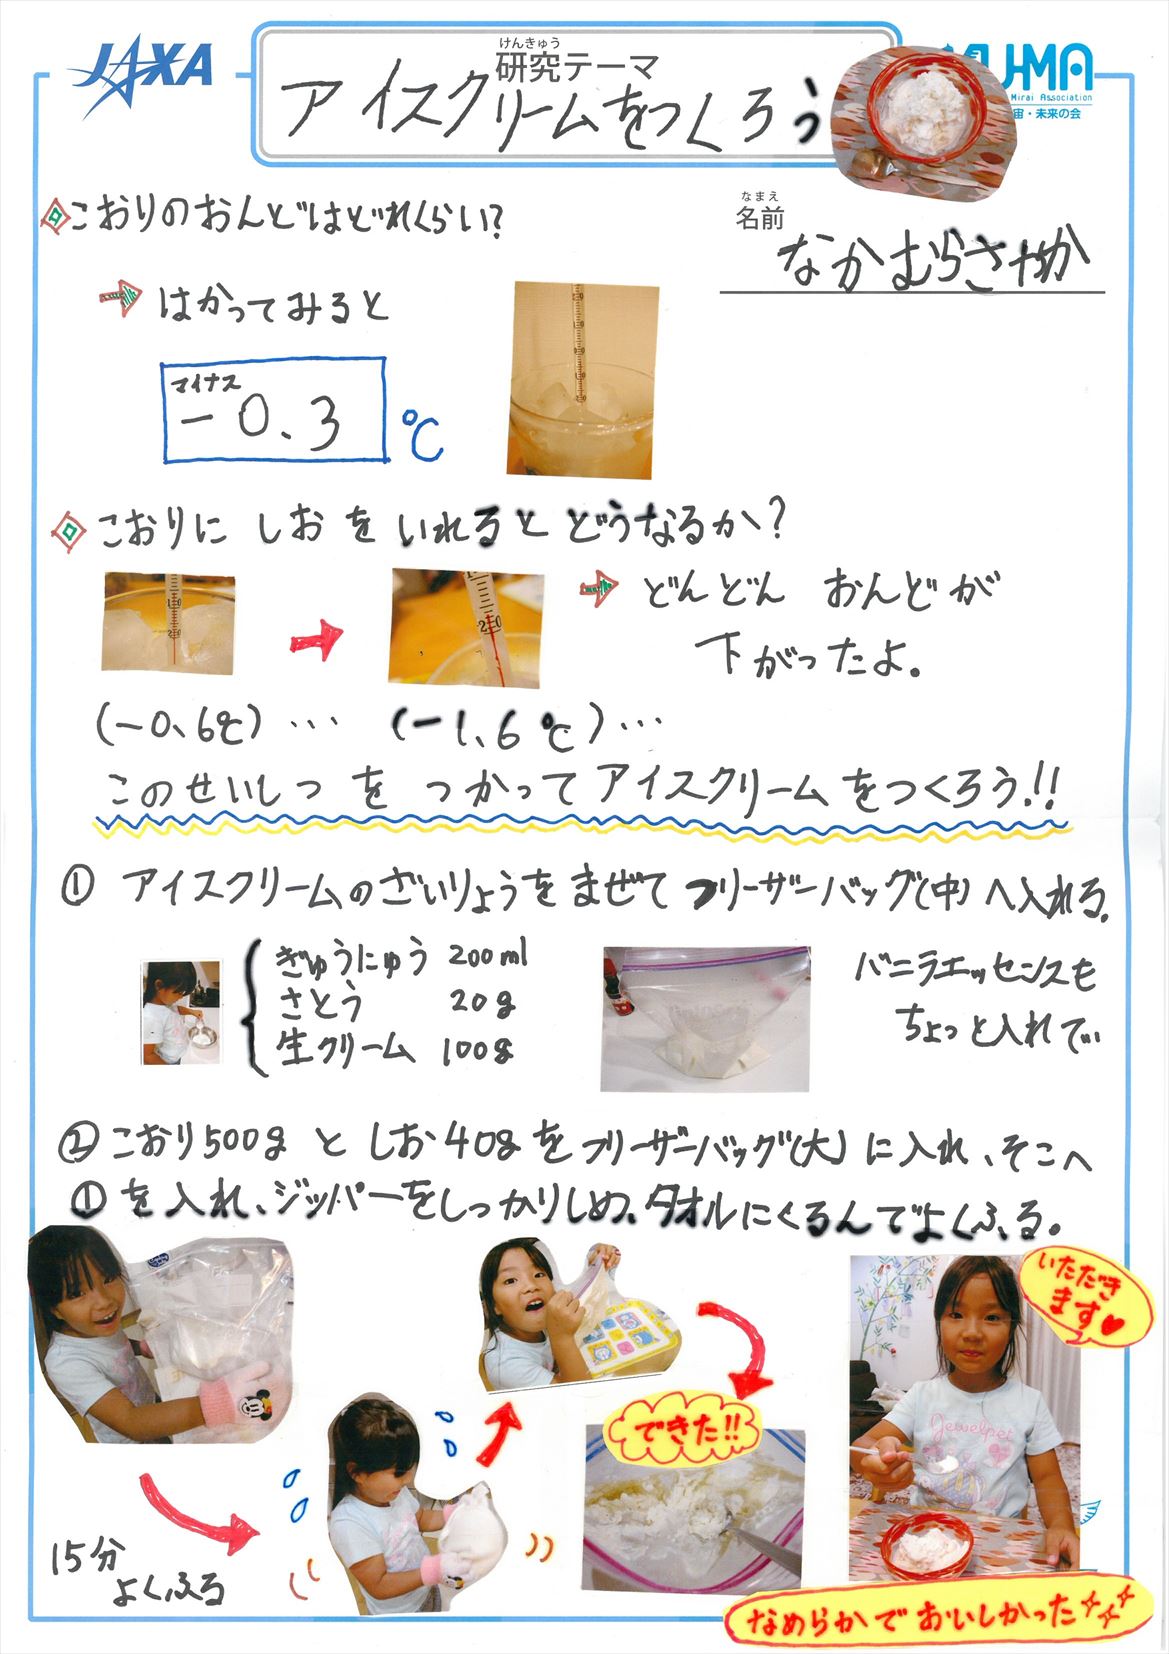 JAXA
けんきゅう
研究テーマ
アイスクリームをつくろう
KU-MA
Mirai Association
宙・未来の会
なまえ
名前
なかむらさやか
こおりのおんどはどれくらい?
はかってみると
マイナス
-0.3 ℃
こおりに しお を いれると どうなるか?
どんどん おんどが
下がったよ。
(-0.6℃) ... (-1.6℃) ...
このせいしつ を つかって アイスクリーム をつくろう!!
① アイスクリームのざいりょうをまぜて フリーザーバッグ(中)へ入れる。
ぎゅうにゅう 200ml
さとう 20g
生クリーム 100g
バニラエッセンスも
ちょっと入れてい
② こおり500g と しお40gをフリーザーバッグ(大)に入れ、そこへ
①を入れ、ジッパーをしっかりしめ、タオルにくるんでよくふる。
いただき
ます♥
Jewelpet
できた!!
15分
よくふる
なめらかで おいしかった